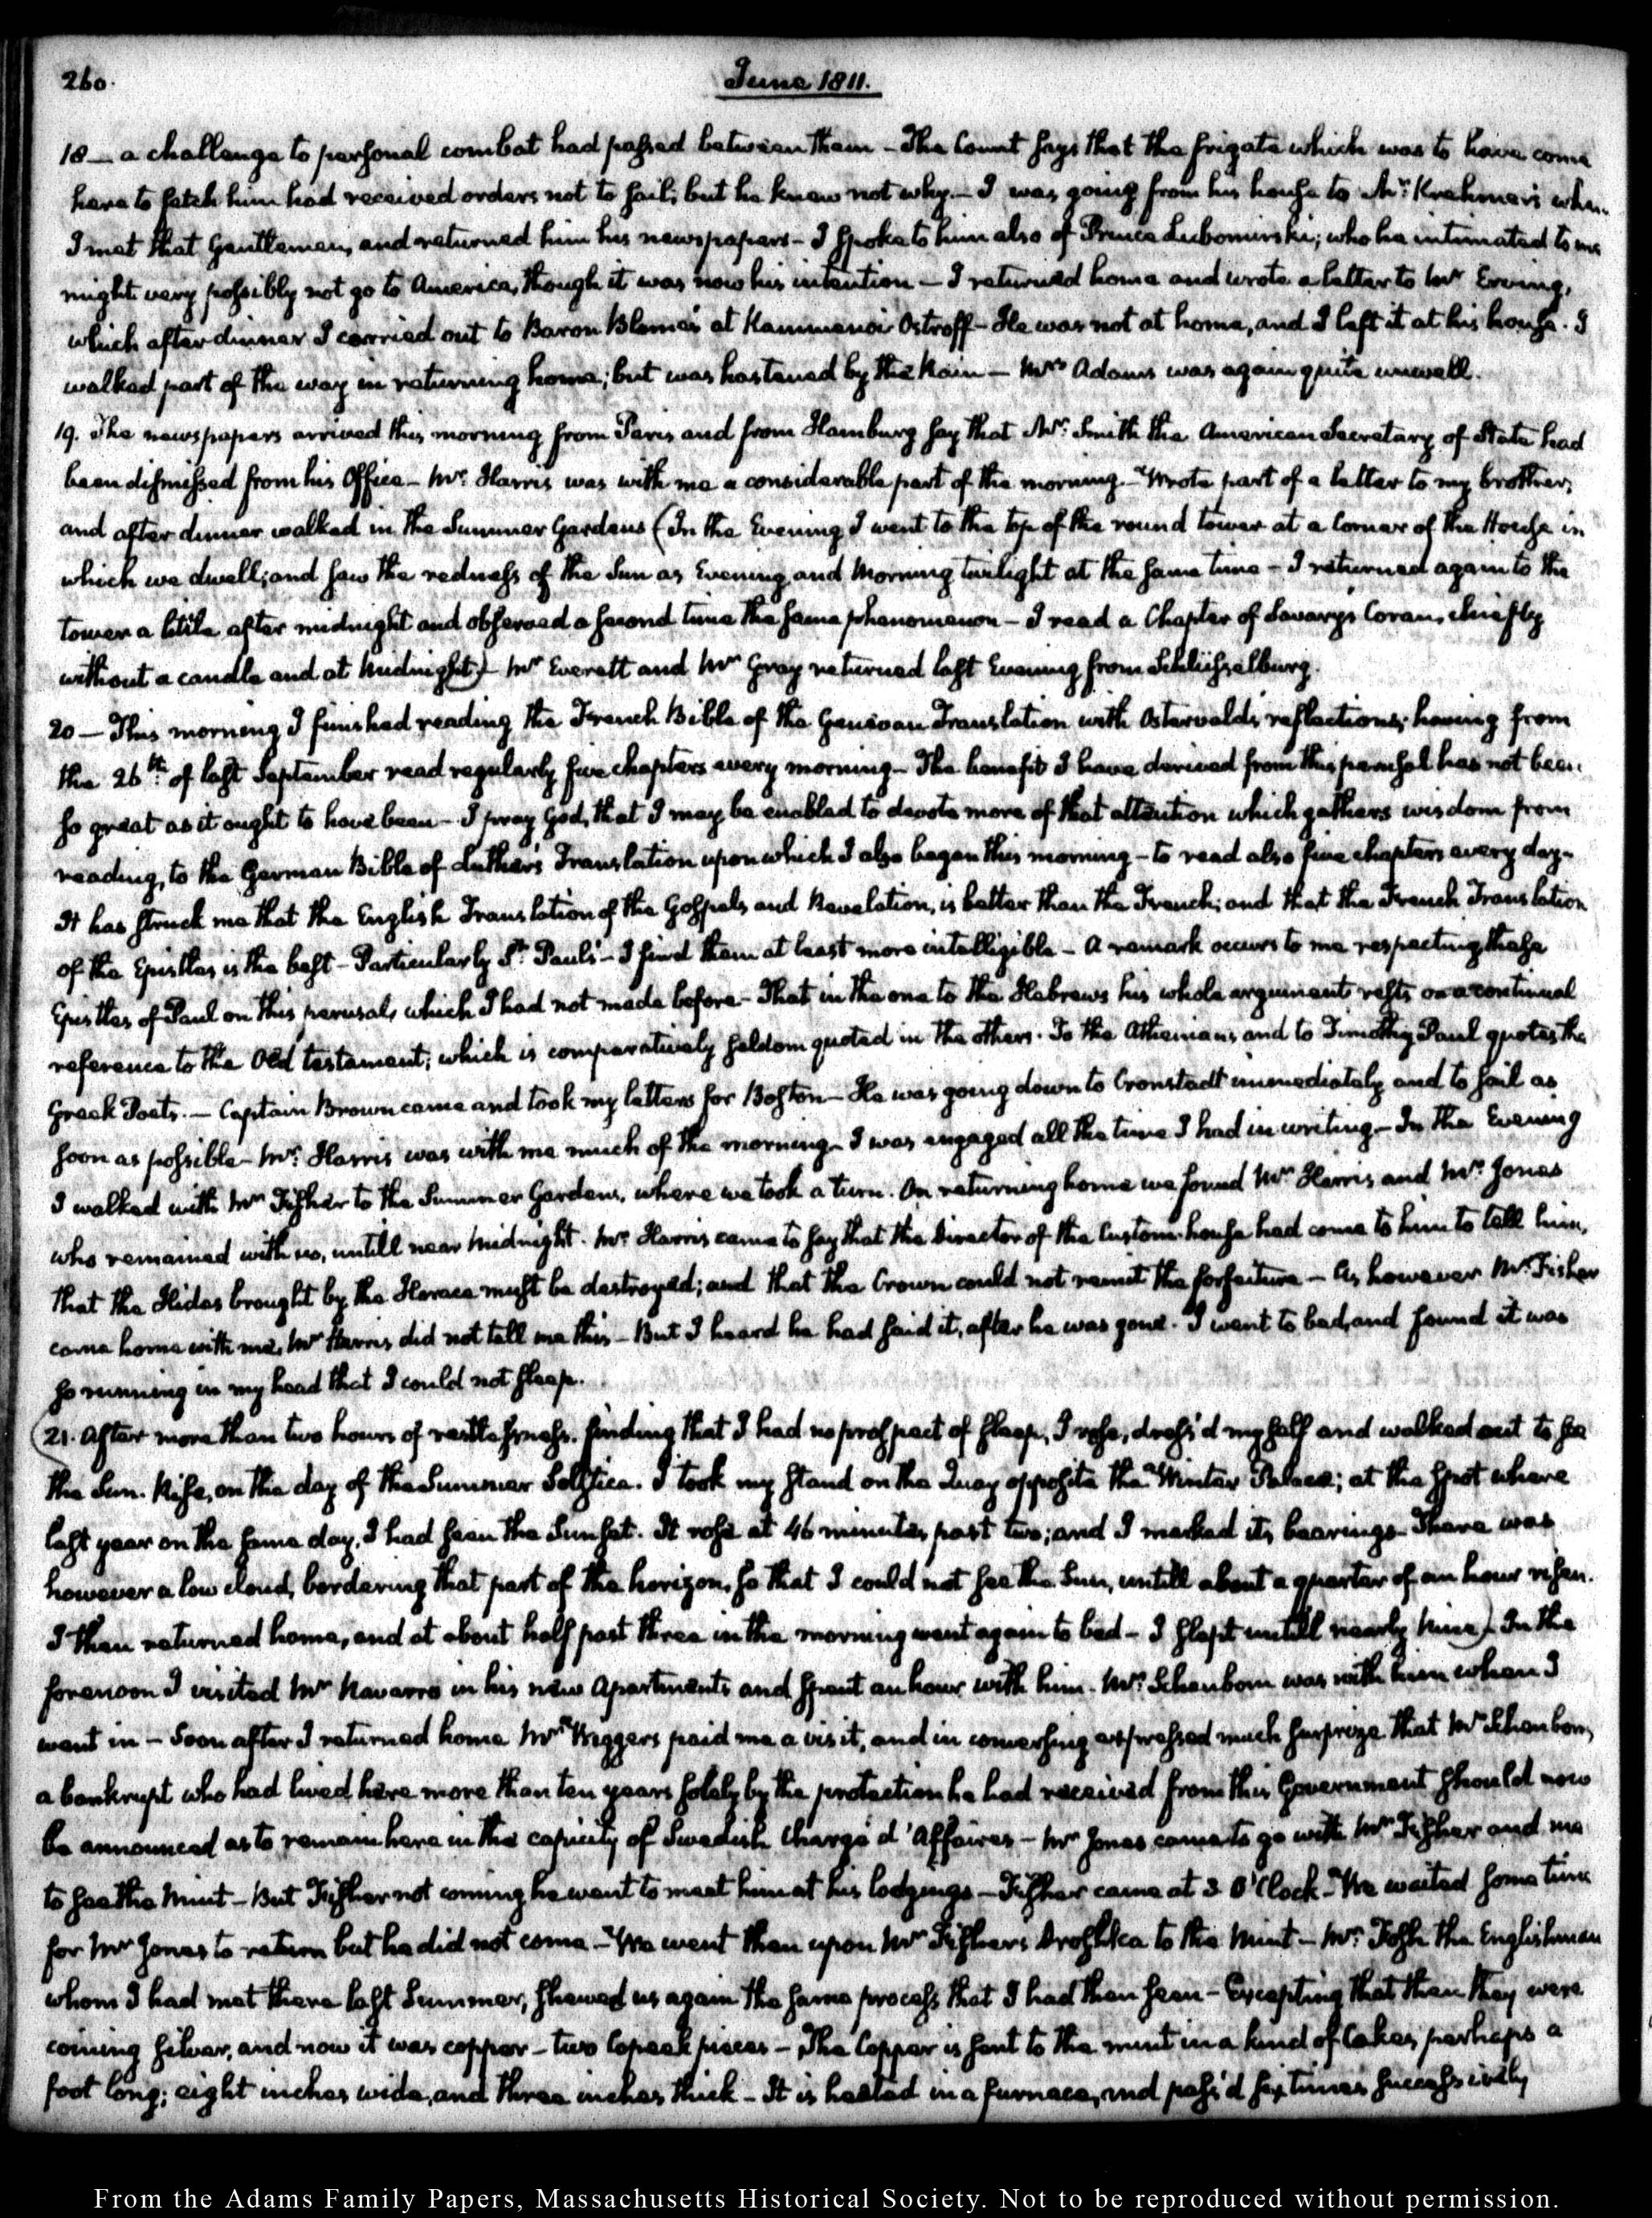 260.
June 1811.
18 — a challenge to personal combat had passed between them – The Count says that the frigate which was to have come
here to fetch him had received orders not to sail; but he knew not why. – I was going from his house to Mr. Krehmer's when
I met that Gentleman, and returned him his newspapers – I spoke to him also of Prince Lubomirski; who he intimated to me
might very possibly not go to America, though it was now his intention – I returned home and wrote a letter to Mr Erving,
which after dinner I carried out to Baron Blome's at Kammenoi Ostroff – He was not at home, and I left it at his house. I
walked part of the way in returning home; but was hastened by the Rain – Mrs Adams was again quite unwell.
19. The newspapers arrived this morning from Paris and from Hamburg say that Mr. Smith the American Secretary of State had
been dismissed from his Office – Mr. Harris was with me a considerable part of the morning. – Wrote part of a letter to my brother;
and after dinner walked in the Summer Gardens (In the Evening I went to the top of the round tower at a Corner of the House in
which we dwell; and saw the redness of the Sun as Evening and Morning twilight at the same time – I returned again to the
tower a little after midnight and observed a second time the same phenomenon – I read a Chapter of Savary's Coran, chiefly
without a candle and at Midnight) – Mr Everett and Mr Gray returned last Evening from Schlüsselburg.
20 – This morning I finished reading the French Bible of the Genevan Translation with Ostervald's reflections; having from
the 26th. of last September read regularly five chapters every morning – The benefit I have derived from this perusal has not been
so great as it ought to have been – I pray God, that I may be enabled to devote more of that attention which gathers wisdom from
reading, to the German Bible of Luther's Translation upon which I also began this morning – to read also five chapters every day –
It has struck me that the English Translation of the Gospels and Revelation, is better than the French; and that the French Translation
of the Epistles, is the best – Particularly St. Paul's – I find them at least more intelligible – A remark occurs to me respecting these
Epistles of Paul on this perusal, which I had not made before – That in the one to the Hebrews his whole argument rests on a continual
reference to the Old testament; which is comparatively seldom quoted in the others. To the Athenians, and to Timothy Paul quotes the
Greek Poets. – Captain Brown came and took my letters for Boston – He was going down to Cronstadt immediately and to sail as
soon as possible – Mr. Harris was with me much of the morning – I was engaged all the time I had in writing – In the Evening
I walked with Mr Fisher to the Summer Gardens, where we took a turn. On returning home we found Mr Harris and Mr. Jones
who remained with us, untill near Midnight. Mr. Harris came to say that the Director of the Custom-house had come to him to tell him,
that the Hides brought by the Horace must be destroyed; and that the Crown could not remit the forfeiture – As however Mr. Fisher
came home with me, Mr Harris did not tell me this – But I heard he had said it, after he was gone. I went to bed, and found it was
so running in my head that I could not sleep.
(21. After more than two hours of restlessness, finding that I had no prospect of sleep, I rose, dress'd myself and walked out to see
the Sun. Rise, on the day of the Summer Solstice. I took my stand on the Quay opposite the Winter Palace; at the spot where
last year on the same day, I had seen the Sun set. It rose at 46 minutes past two; and I marked its bearings – There was
however a low cloud, bordering that part of the horizon, so that I could not see the Sun, untill about a quarter of an hour risen.
I then returned home, and at about half past three in the morning went again to bed – I slept untill nearly Nine) – In the
forenoon I visited Mr Navarro in his new Apartments and spent an hour with him. Mr. Schenbom was with him when I
went in – Soon after I returned home Mr Wiggers paid me a visit, and in conversing expressed much surprize that Mr Schenbom,
a bankrupt who had lived here more than ten years solely by the protection he had received from this Government should now
be announced as to remain here in the capacity of Swedish Chargé d'Affaires – Mr Jones came to go with Mr Fisher and me
to see the Mint – But Fisher not coming he went to meet him at his lodgings – Fisher came at 3 O'Clock – We waited some time
for Mr Jones to return but he did not come – We went then upon Mr Fisher's Droshka to the Mint – Mr. the Englishman
whom I had met there last Summer, shewed us again the same process that I had then seen – Excepting that then they were
coining silver, and now it was copper – two Copeek pieces – The Copper is sent to the mint in a kind of Cakes, perhaps a
foot long; eight inches wide, and three inches thick – It is heated in a furnace, and pass'd six times successively
From the Adams Family Papers, Massachusetts Historical Society. Not to be reproduced without permission.